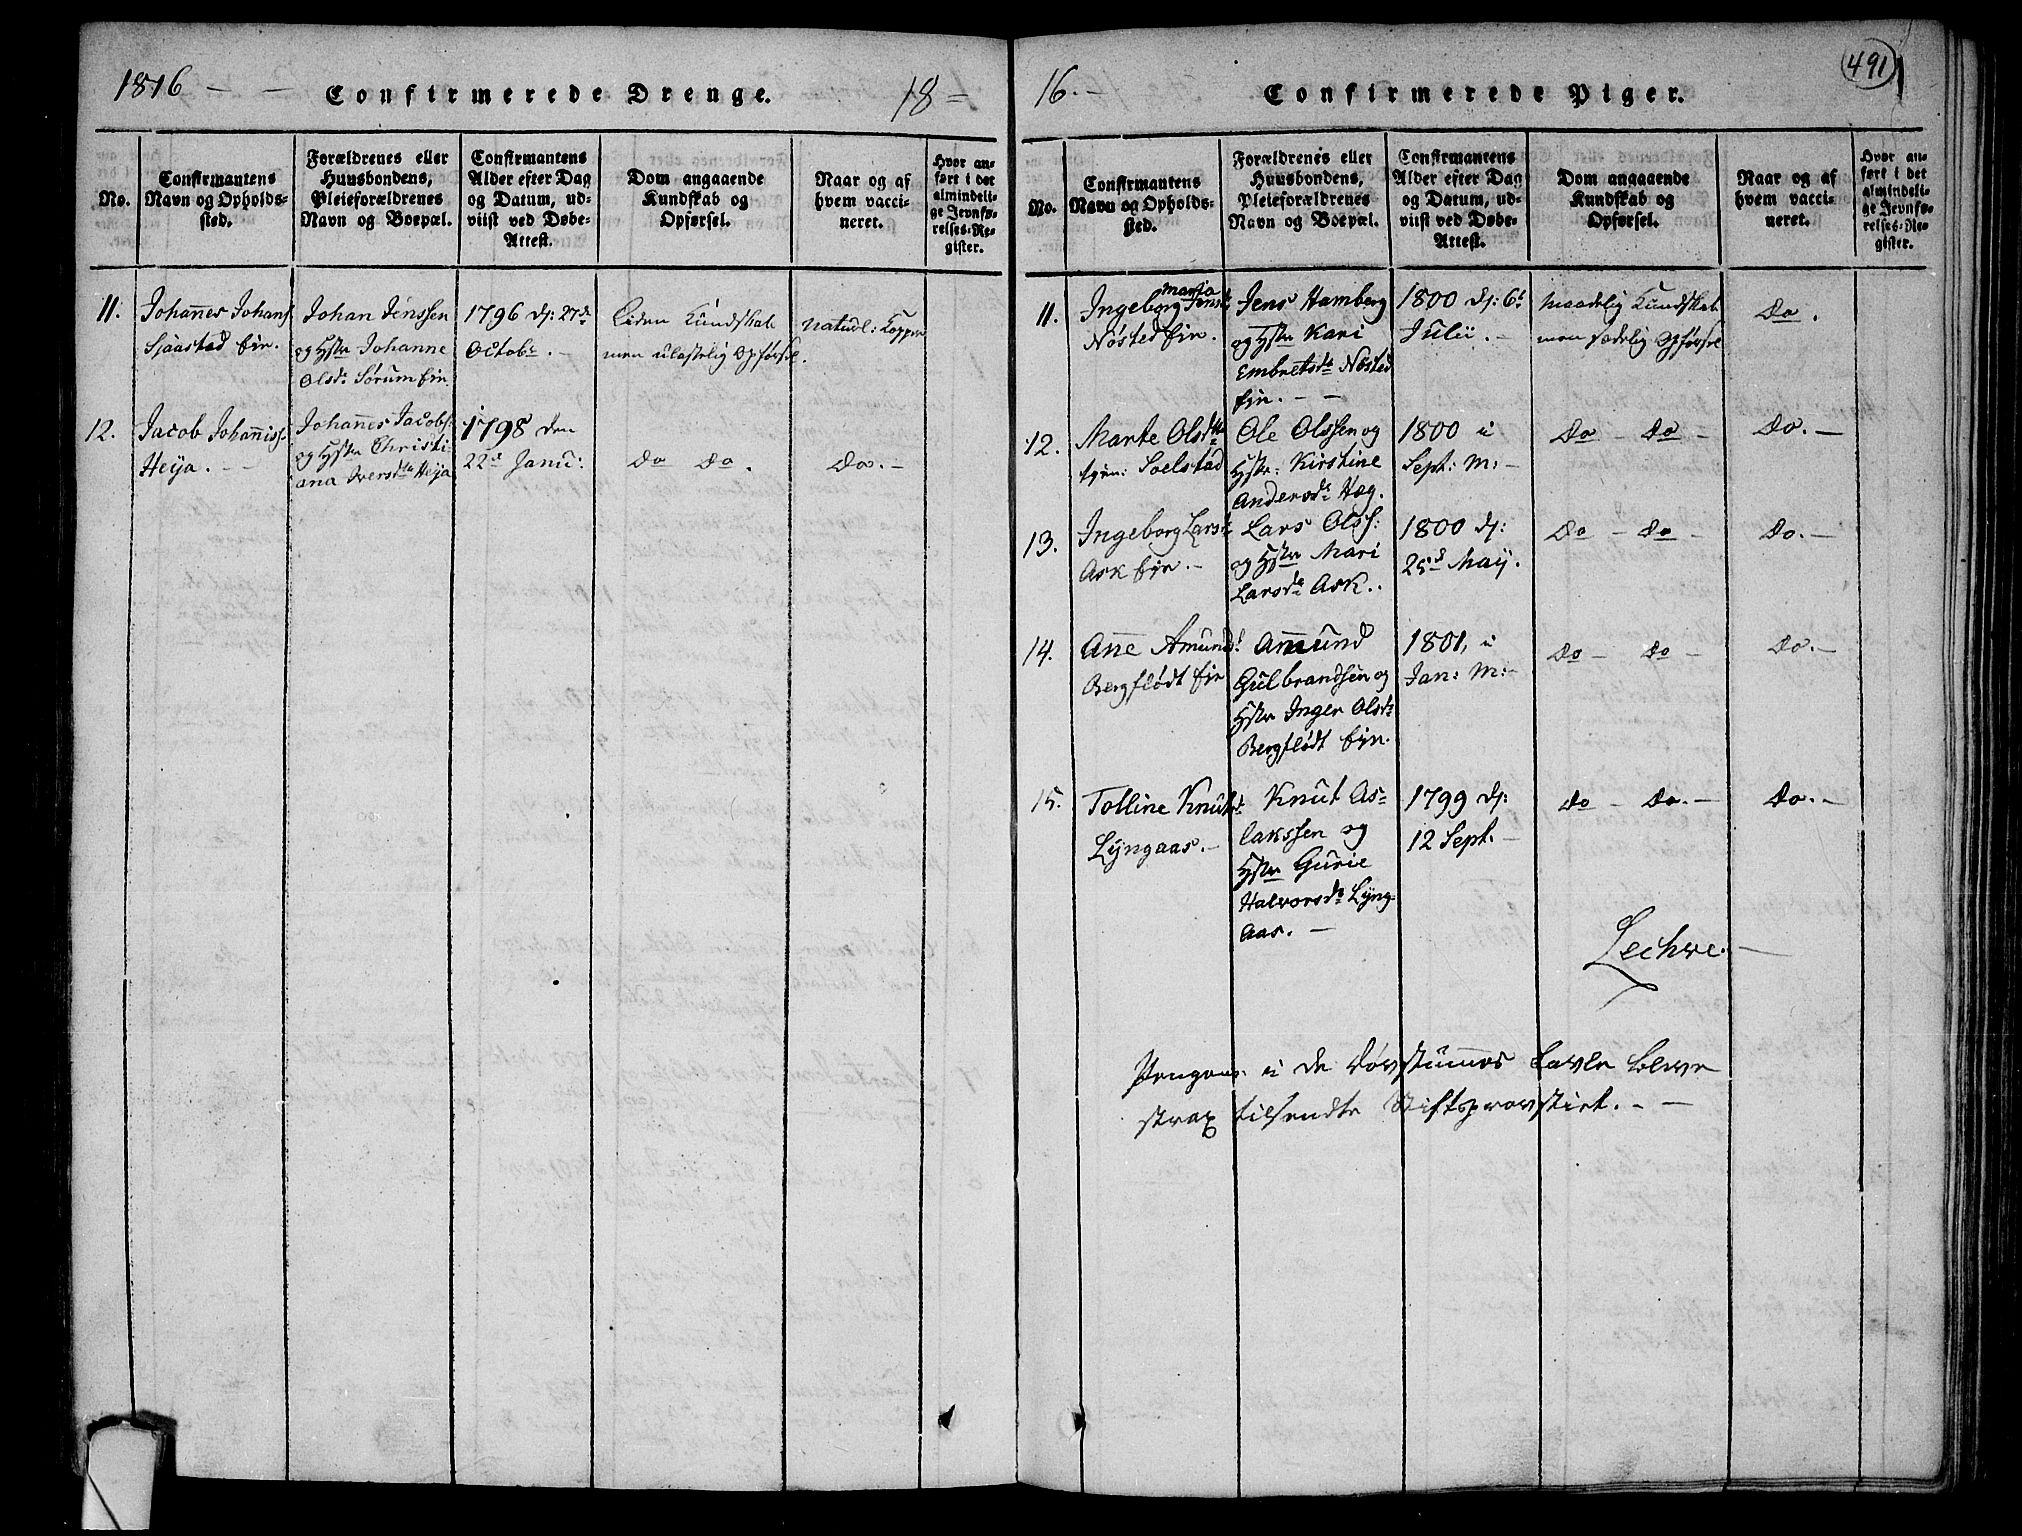 1816 - - Confirmerede Drenge. 18=
No.
Confirmantens
Navn og Opholds-
sted.
Forældrenes eller
Huusbondens,
Pleieforældrenes
Navn og Boepæl.
Confirmantens
Alder efter Dag
og Datum, ud-
viist ved Døbe-
Attest.
Dom angaaende
Kundskab og
Opførsel.
Naar og af
hvem vacci-
neret.
Hvor an-
ført i det
almindeli-
ge Jevnfø-
relses-Re-
gister.
11.
Johannes Johans:
Sjaastad Eier.
Johan Jenssen
og Hstr Johanne
Olsdr Sørum Eier
1796 d: 27de
Octobr. -
Liden Kundskab
men ulastelig Opførsel.
naturl: Kopper
12.
Jacob Johanniss:
Heya. - -
Johannes Jacobs:
og Hstr Christi-
ana Iversdr Heya
1798 den
22de Janu:
do do.
do. -
16. - Confirmerede Piger. 491
No.
Confirmantens
Navn og Opholds-
sted.
Forældrenes eller
Huusbondens,
Pleieforældrenes
Navn og Boepæl.
Confirmantens
Alder efter Dag
og Datum, ud-
viist ved Døbe-
Attest.
Dom angaaende
Kundskab og
Opførsel.
Naar og af
hvem vacci-
neret.
Hvor an-
ført i det
almindeli-
ge Jevnfø-
relses-Re-
gister.
11.
Ingeborg Maria Jensd:
Nøsted Eier.
Jens Hamberg
og Hstr Kari
Embretsdr Nøsted
Eier. - -
1800 d: 6t
Julii. -
Maadelig Kundskab
men sædelig Opførsel
do.
12.
Marte Olsdtr
tjen: Soelstad
Ole Olssen og
Hstr: Kirstine
Andersdr Hæg.
1800 i
Sept: M: -
do - do -
do. -
13.
Ingeborg Larsd:
Ask Eier. -
Lars Olss:
og Hstr Mari
Larsdr Ask.
1800 d:
25d Maij.
do - do -
do. -
14.
Anne Amundd:
Bergflødt Eier
Amund
Gulbrandsen og
Hstr Inger Olsdr
Bergflødt Eier.
1801, i
Jan: M: -
do - do -
do. -
15.
Tolline Knutsd:
Lyngaas. -
Knut As-
lakssen og
Hstr Gurie
Halvorsdr Lyng-
aas. -
1799 d:
12 Sept. -
do - do. -
do. -
Lechve. -
Pengene i de Døvstummes Tavle bleve
strax tilsendte Stiftsprovstiet. - -